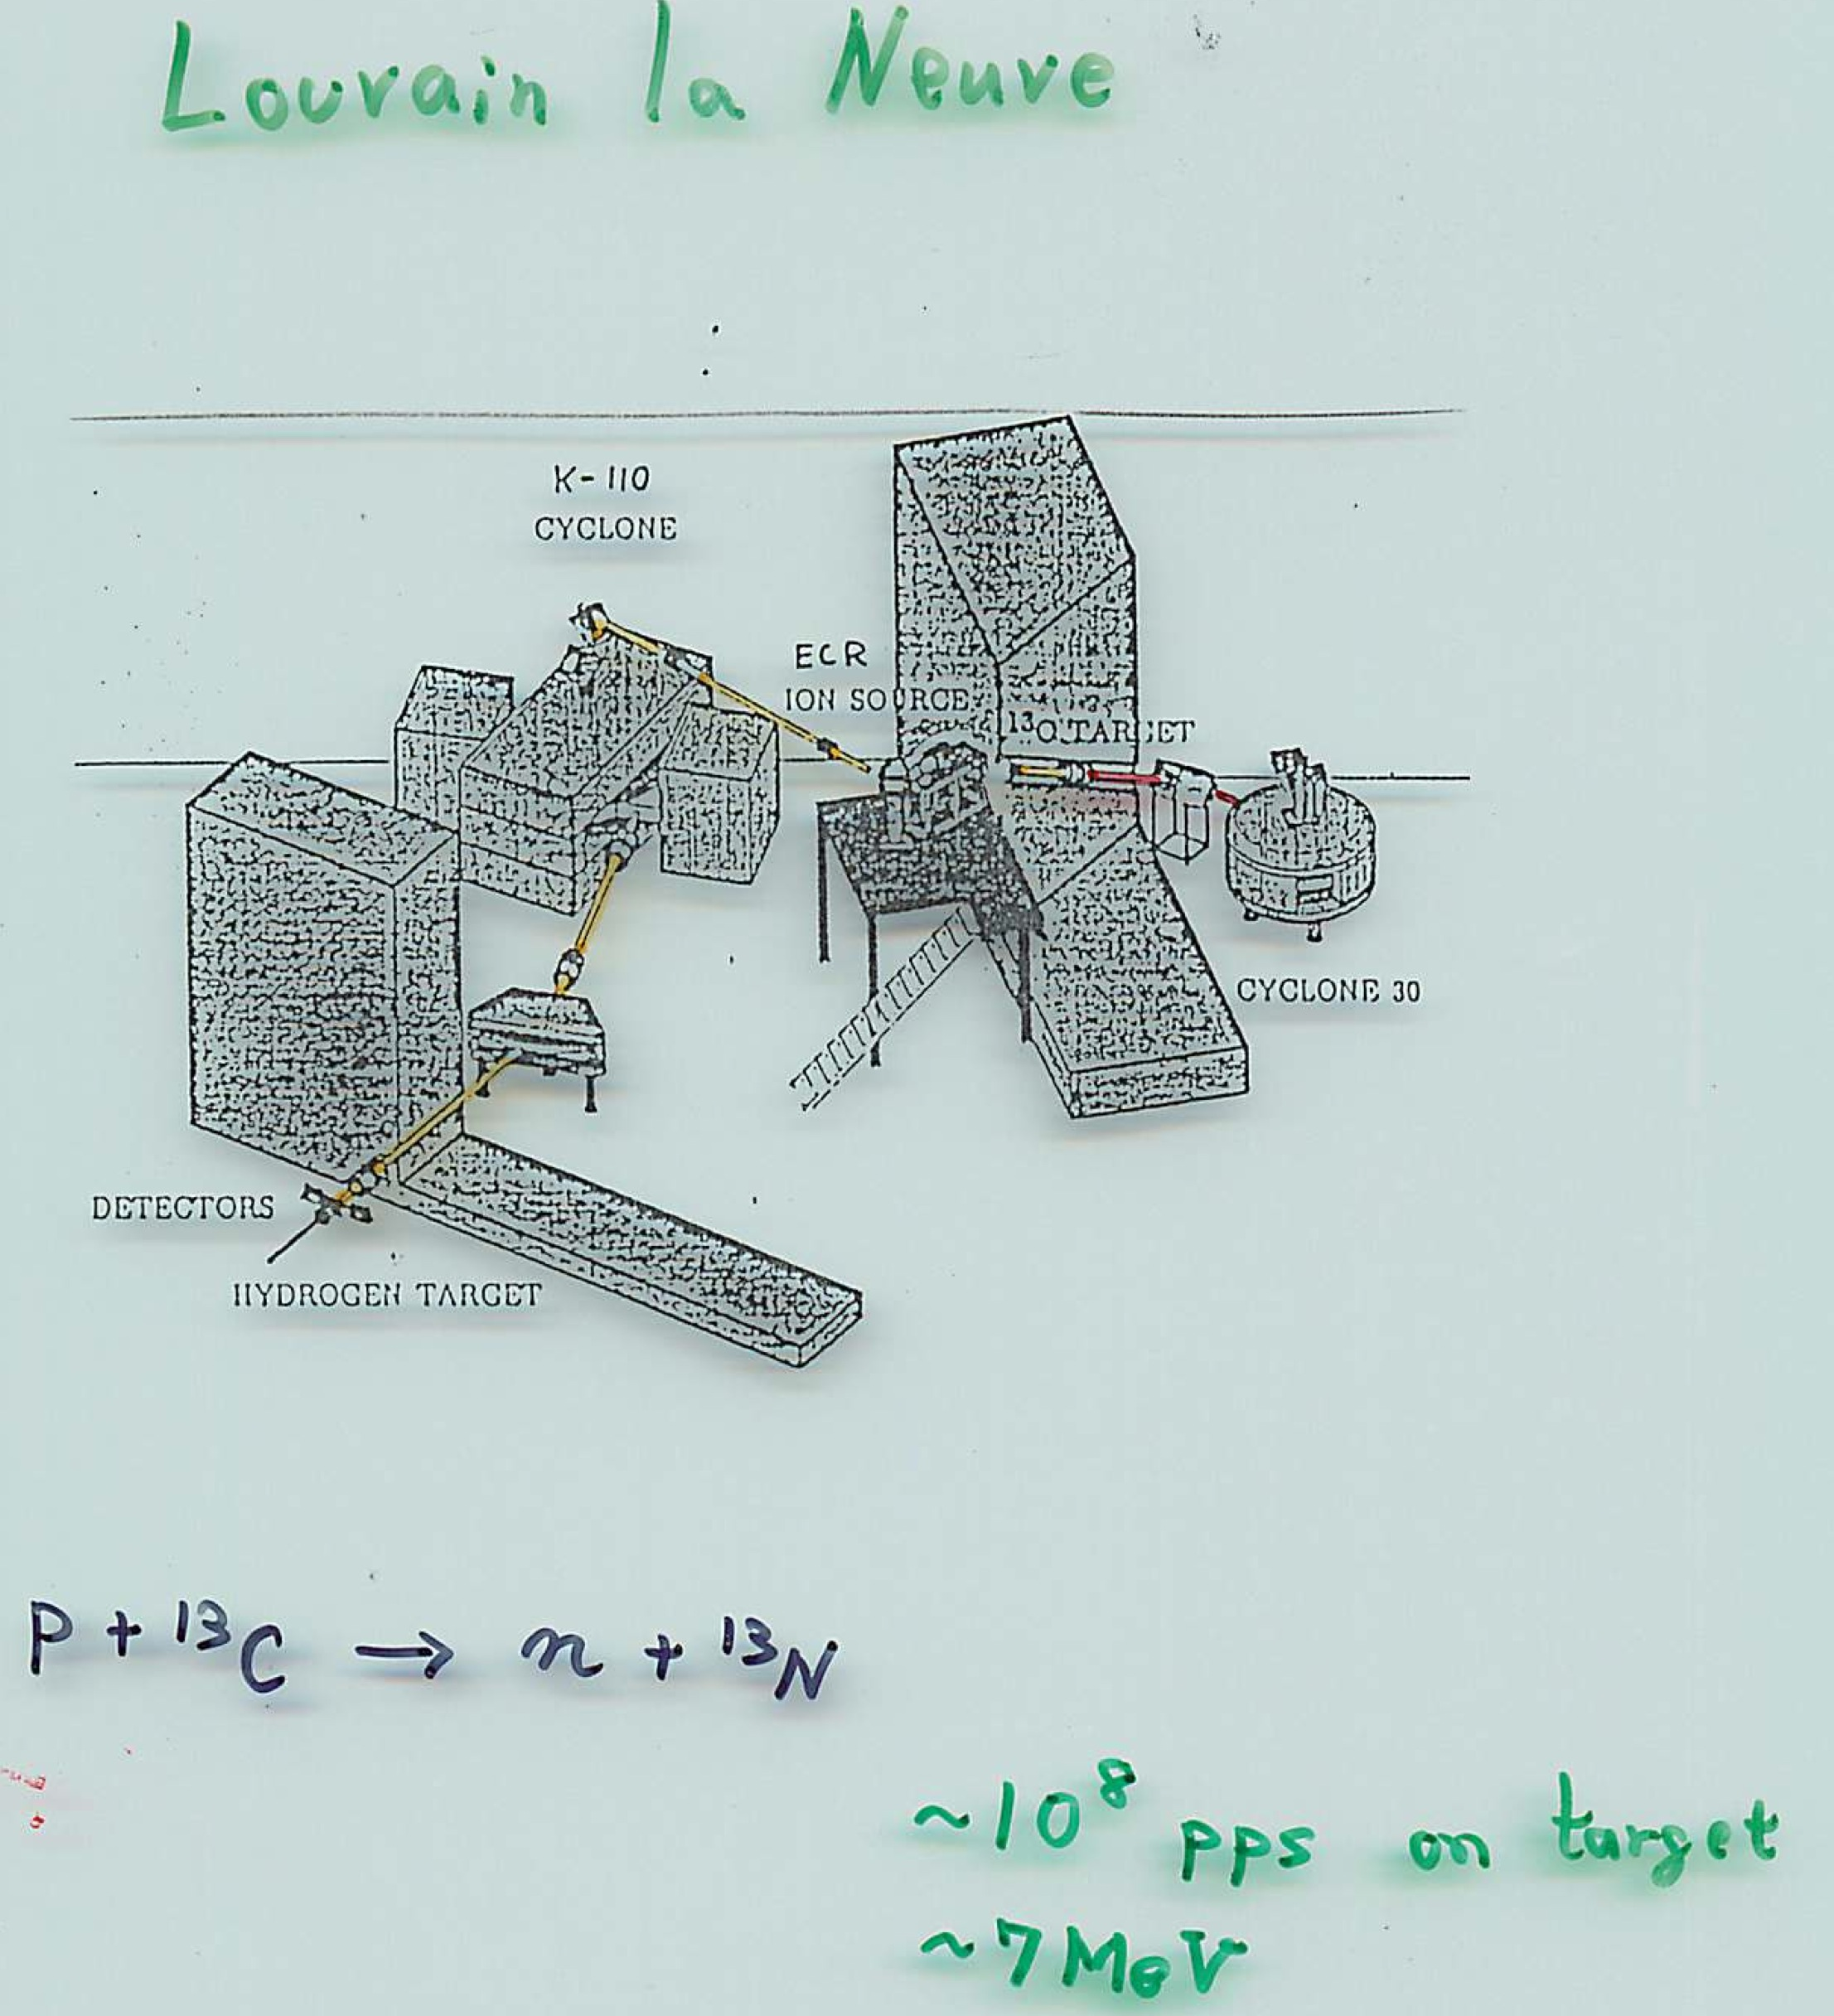 Louvain la Neuve
K-110
CYCLONE
ECR
ION SOURCE
¹³C TARGET
CYCLONE 30
DETECTORS
HYDROGEN TARGET
p + ¹³C → n + ¹³N
~10⁸ pps on target
~7 MeV